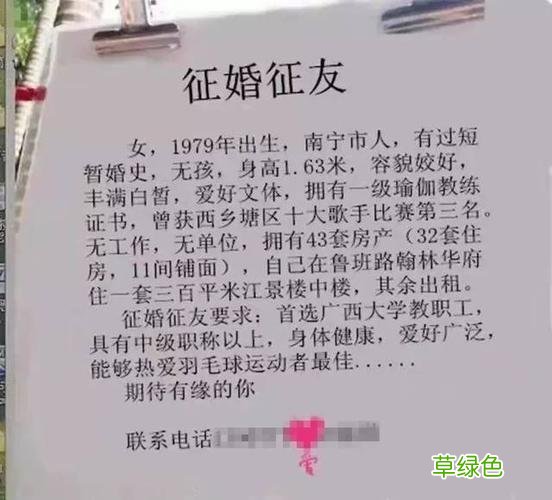 征婚征友
女，1979年出生，南宁市人，有过短
暂婚史，无孩，身高1.63米，容貌姣好，
丰满白皙，爱好文体，拥有一级瑜伽教练
证书，曾获西乡塘区十大歌手比赛第三名。
无工作，无单位，拥有43套房产（32套住
房，11间铺面），自己在鲁班路翰林华府
住一套三百平米江景楼中楼，其余出租。
征婚征友要求：首选广西大学教职工，
具有中级职称以上，身体健康，爱好广泛，
能够热爱羽毛球运动者最佳......
期待有缘的你
联系电话
草绿色